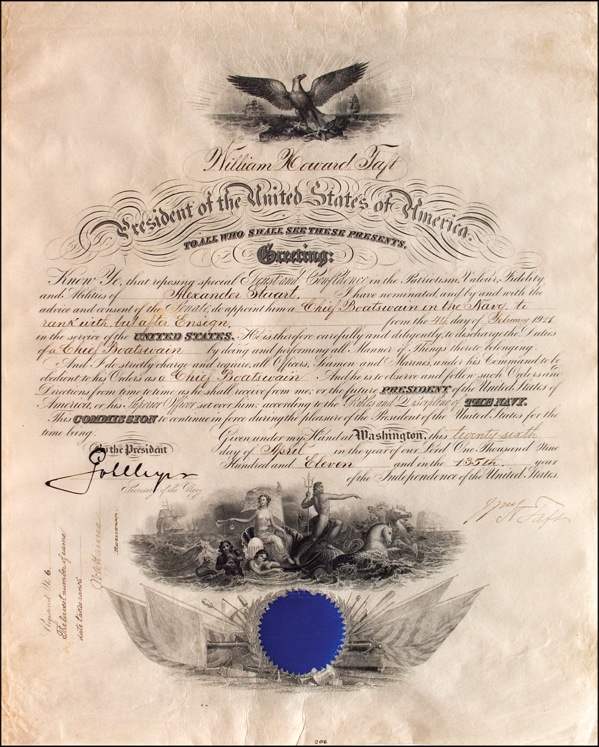 William Howard Taft
President of the United States of America.
TO ALL WHO SHALL SEE THESE PRESENTS,
Greeting:
Know Ye, that reposing special Trust and Confidence in the Patriotism, Valour, Fidelity
and Abilities of Alexander Stuart, I have nominated, and by and with the
advice and consent of the Senate, do appoint him a Chief Boatswain in the Navy, to
rank with, but after Ensign, from the day of February 1911
in the service of the UNITED STATES. He is therefore carefully and diligently to discharge the Duties
of a Chief Boatswain by doing and performing all Manner of Things thereto belonging.
And I do strictly charge and require all Officers, Seamen and Marines, under his Command to be
obedient to his Orders as a Chief Boatswain. And he is to observe and follow such Orders and
Directions from time to time as he shall receive from me, or the future PRESIDENT of the United States of
America, or his Superior Officer set over him, according to the Rules and Discipline of THE NAVY.
This COMMISSION to continue in force during the pleasure of the President of the United States for the
time being.
Given under my Hand at Washington, this twenty sixth
day of April in the year of our Lord One Thousand Nine
Hundred and Eleven and in the 135th year
of the Independence of the United States.
By the President
GvLMeyer
Secretary of the Navy
Wm H Taft
Registered No. 6
The lowest number of same
date takes rank
206